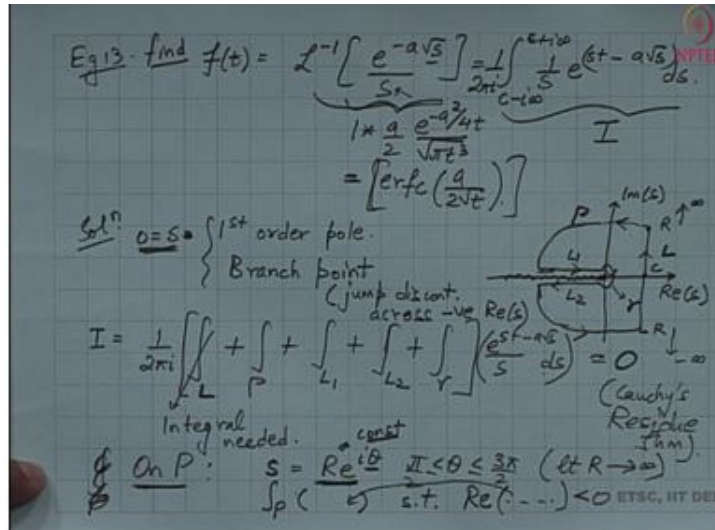 Eg 13. find f(t) = L⁻¹[e^(-a√s)/s] = 1/2πi ∫_{c-i∞}^{c+i∞} 1/s e^(st - a√s) ds.
I
1 * a/2 e^(-a²/4t)/√(πt³)
= [erfc(a/2√t).]
Solⁿ 0=s { 1st order pole.
Branch point
(jump discont. across -ve Re(s)
Im(s)
Γ R ↑ ∞
L
L1 c
L2 γ Re(s)
R ↓ -∞
I = 1/2πi [∫_L + ∫_Γ + ∫_L1 + ∫_L2 + ∫_γ] (e^(st-a√s)/s ds) = 0
(Cauchy's Residue Thm).
Integral needed.
const
On Γ : s = Re^(iθ) π/2 ≤ θ ≤ 3π/2 (lt R → ∞)
∫_Γ ( ) s.t. Re(.....) < 0
NPTEL
ETSC, IIT DEL